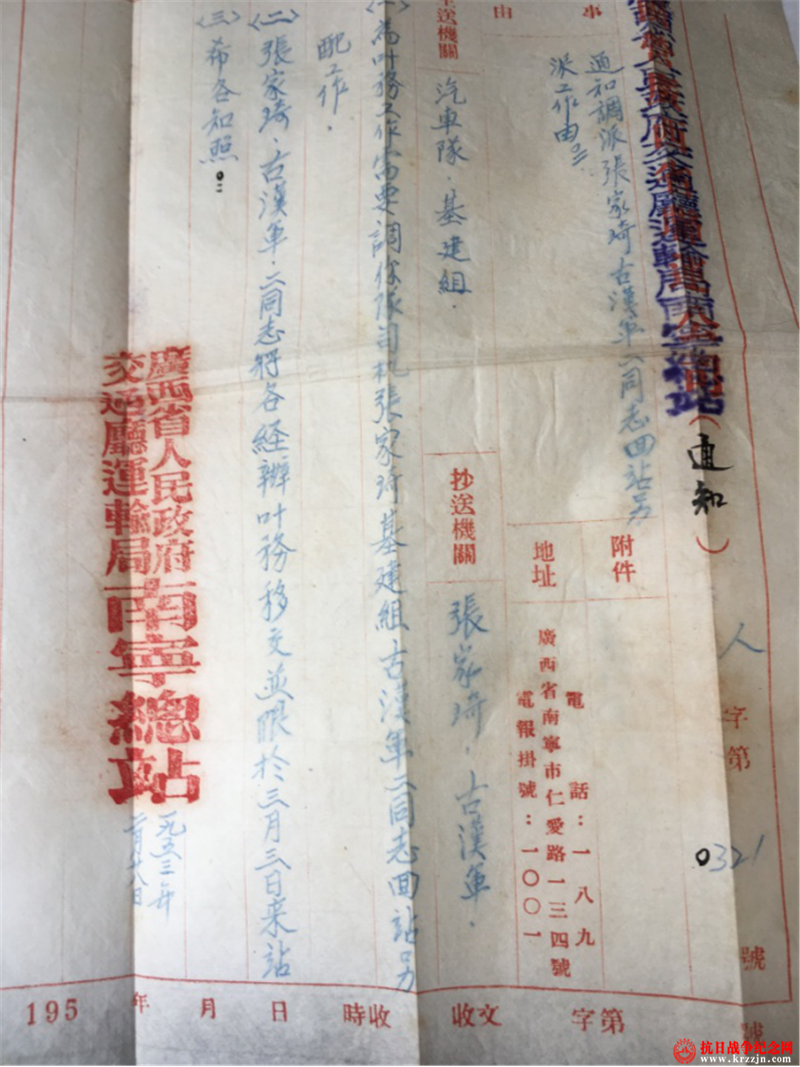 廣西省人民政府交通廳運輸局南寧總站（通知）
人字第0321號
事由
通知調派張家琦古漢軍二同志回站另
派工作由
附件
地址
電話：一八九
廣西省南寧市仁愛路一三四號
電報掛號：一〇〇一
主送機關
汽車隊．基建組．
抄送機關
張家琦．古漢軍．
〈一〉為叶務工作需要調你隊司机張家琦基建組古漢軍二同志回站另
配工作．
〈二〉張家琦．古漢軍．二同志將各經辦叶務移交並限於三月三日来站
〈三〉希各知照．
廣西省人民政府
交通廳運輸局
南寧總站
一九五三年
二月廿八日
195 年 月 日 收時 收文 字第 號
抗日战争纪念网
www.krzzjn.com